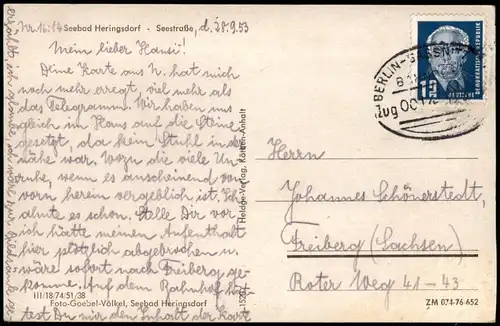 Nr. 16:14
Seebad Heringsdorf - Seestraße, d. 28.9.53
Mein lieber Hansi!
Deine Karte aus N. hat mich
noch mehr erregt, viel mehr als
das Telegramm. Wir haben uns
gleich im Haus auf die Steine
gesetzt, da kein Stuhl in der
Nähe war. Wozu die viele Un-
ruhe, wenn es anscheinend von
vorn herein vergeblich ist. Ich
ahnte es schon. Stelle Dir vor
ich hätte meinen Aufenthalt
hier plötzlich abgebrochen u.
wäre sofort nach Freiberg ge-
komme. Auf dem Bahnhof
test Du mir den Inhalt der Karte
III/18/74/51/38
Foto-Goebel-Völkel, Seebad Heringsdorf
Heldge-Verlag, Köthen-Anhalt
DEUTSCHE DEMOKRATISCHE REPUBLIK
12
BERLIN-
Zug 001
Herrn
Johannes Schönerstedt,
Freiberg (Sachsen)
Roter Weg 41-43
ZM 074-76 652